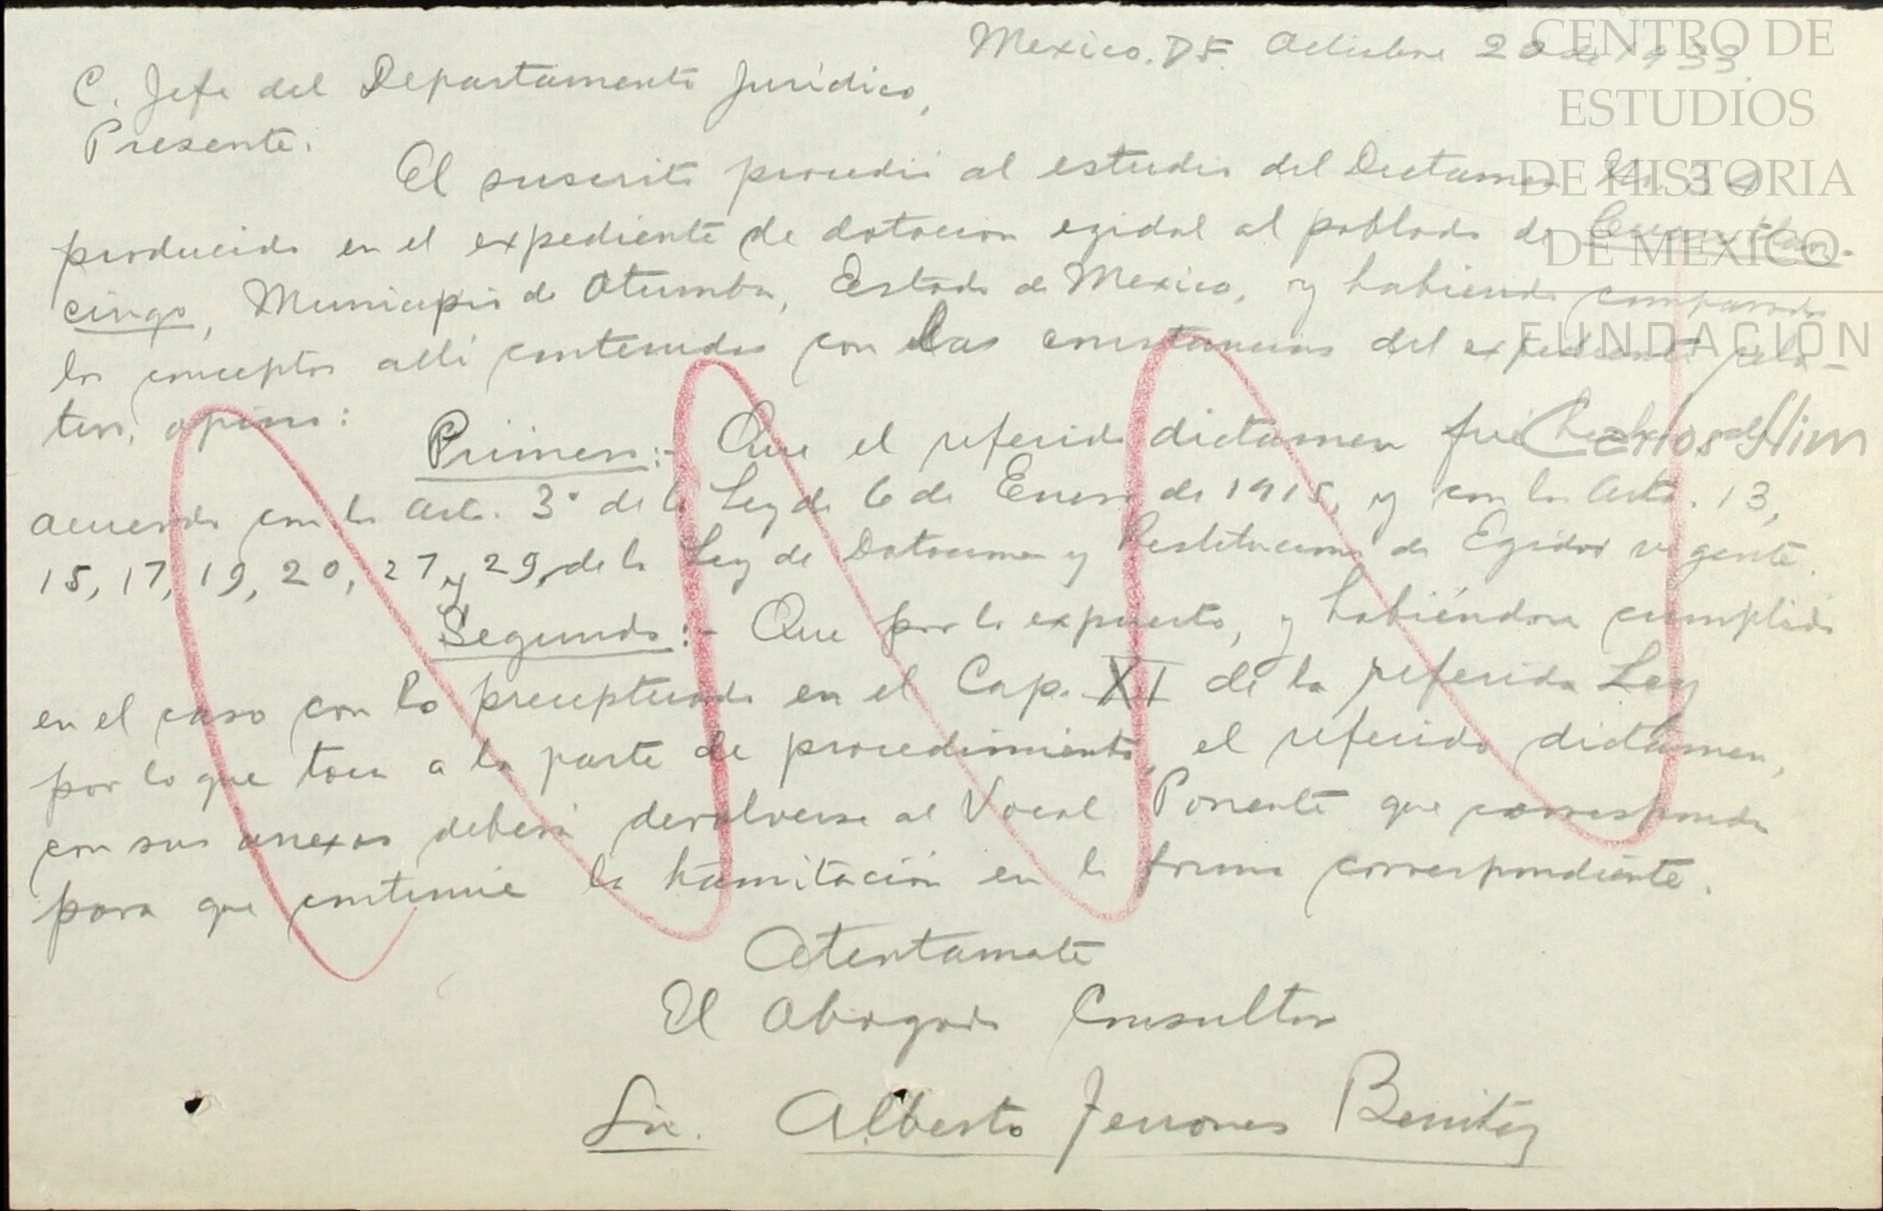 CENTRO DE
ESTUDIOS
DE HISTORIA
DE MÉXICO
FUNDACIÓN
Carlos Slim
Mexico. D.F. Octubre 20 de 1933
C. Jefe del Departamento Jurídico,
Presente.
El suscrito procedió al estudio del Dictamen
producido en el expediente de dotacion egidal al poblado de
cingo, Municipio de Otumba, Estado de Mexico, y habiendo comparado
los conceptos allí contenidos con las constancias del expediente rela-
tivo, opino:
Primero:- Que el referido dictamen fué
acuerdo con lo art. 3° de la Ley de 6 de Enero de 1915, y con los Arts. 13,
15, 17, 19, 20, 27 y 29, de la Ley de Dotaciones y Restituciones de Egidos vigente.
Segundo:- Que por lo expuesto, y habiéndose cumplido
en el caso con lo preceptuado en el Cap. XI de la referida Ley
por lo que toca a la parte de procedimiento, el referido dictamen,
con sus anexos deberá devolverse al Vocal Ponente que corresponda
para que continúe la tramitación en la forma correspondiente.
Atentamente
El Abogado Consultor
Lic. Alberto Terrones Benitez